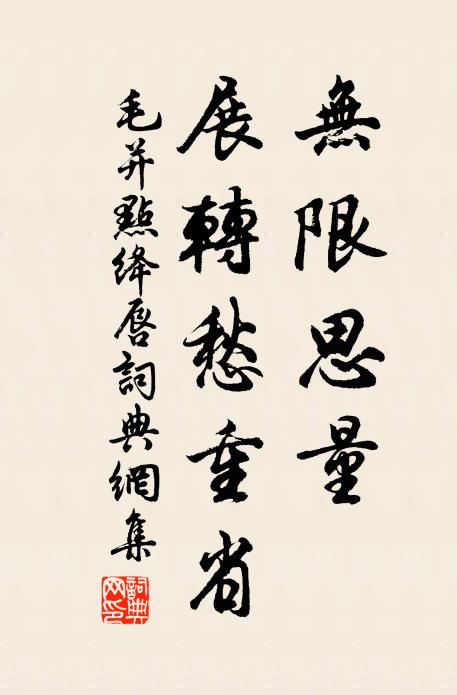 無限思量
展轉愁重省
毛并點絳唇詞典網集
詞典網印